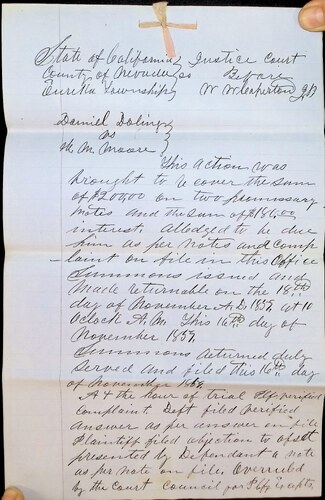 State of California } Justice Court
County of Nevada } ss Before
Eureka Township } W W Caperton J.P.
Daniel Doling }
vs
H. M. Moore }
This action was
brought to recover the sum
of $200.00 on two promissory
notes and the sum of
interest. Alledged to be due
him as per notes and comp
laint on file in this Office
Summons issued and
made returnable on the 18th
day of November A.D. 1859. at 10
Oclock A.M. This 16th day of
November 1859.
Summons returned duly
served and filed this 16th day
of November 1859
At the hour of trial Plf verified
Complaint. Deft filed verified
answer as per answer on file
Plaintiff filed objection to ofset
presented by Dependant a note
as per note on file. Overruled
by the Court Council for Plff Excepts